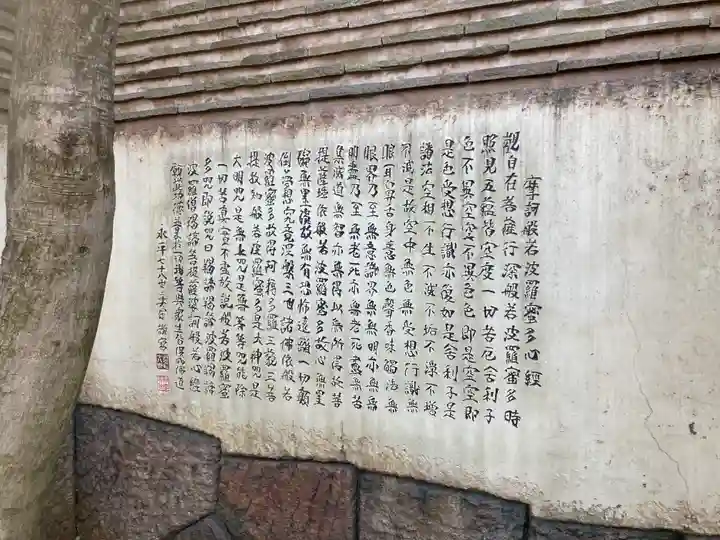 摩訶般若波羅蜜多心經
觀自在菩薩行深般若波羅蜜多時
照見五蘊皆空度一切苦厄舍利子
色不異空空不異色色即是空空即
是色受想行識亦復如是舍利子是
諸法空相不生不滅不垢不淨不增
不減是故空中無色無受想行識無
眼耳鼻舌身意無色聲香味觸法無
眼界乃至無意識界無無明亦無無
明盡乃至無老死亦無老死盡無苦
集滅道無智亦無得以無所得故菩
提薩埵依般若波羅蜜多故心無罣
礙無罣礙故無有恐怖遠離一切顛
倒夢想究竟涅槃三世諸佛依般若
波羅蜜多故得阿耨多羅三藐三菩
提故知般若波羅蜜多是大神咒是
大明咒是無上咒是無等等咒能除
一切苦真實不虛故說般若波羅蜜
多咒即說咒曰揭諦揭諦波羅揭諦
波羅僧揭諦菩提薩婆訶般若心經
願以此功德普及於一切我等與衆生皆共成佛道
永平七十